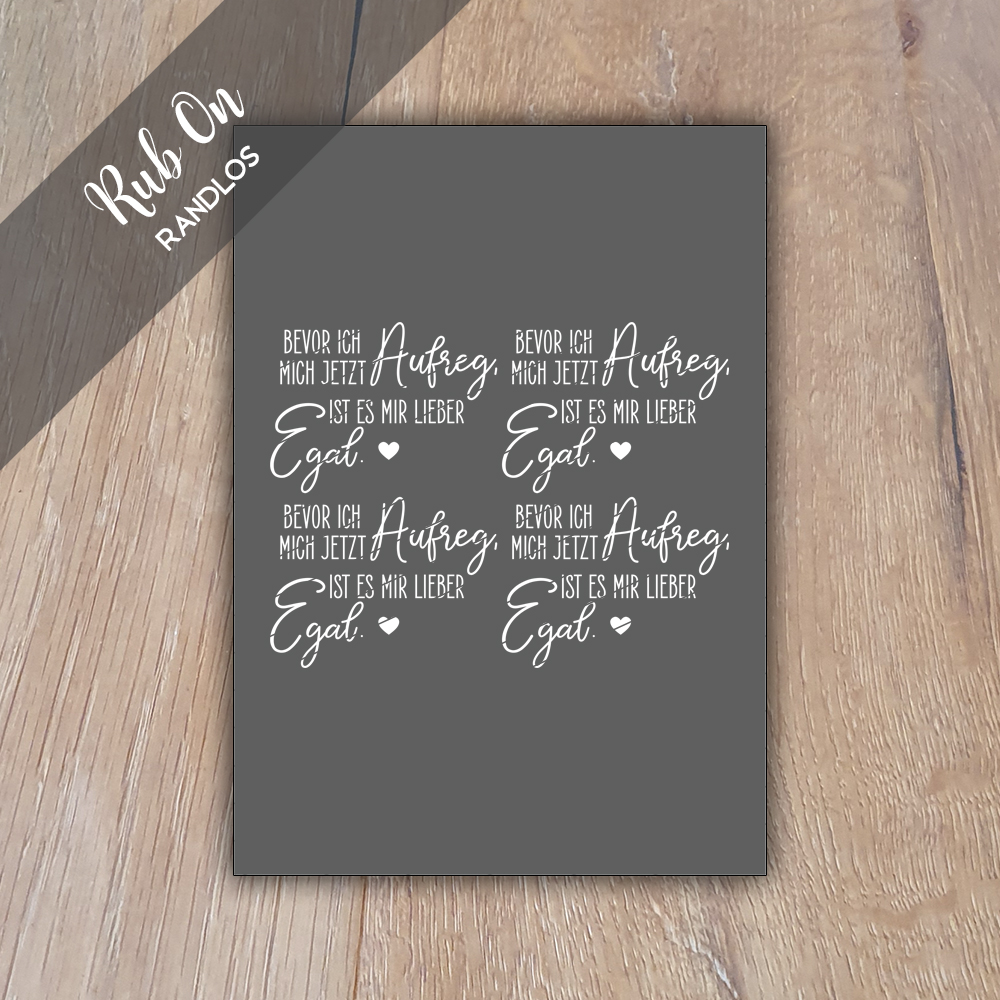 Rub On
RANDLOS
BEVOR ICH
MICH JETZT Aufreg,
IST ES MIR LIEBER
Egal.
BEVOR ICH
MICH JETZT Aufreg,
IST ES MIR LIEBER
Egal.
BEVOR ICH
MICH JETZT Aufreg,
IST ES MIR LIEBER
Egal.
BEVOR ICH
MICH JETZT Aufreg,
IST ES MIR LIEBER
Egal.